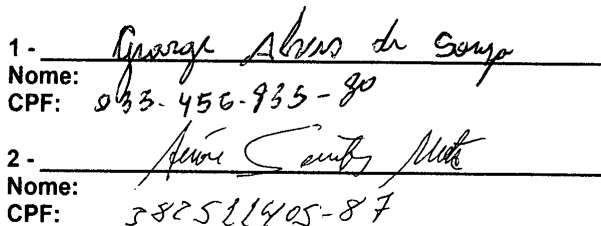 1 - George Alves de Souza
Nome:
CPF: 033-456-935-80
2 -
Nome:
CPF: 382511405-87